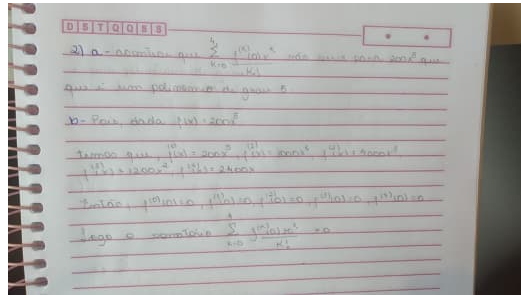 D S T Q Q S S
2) a - que \sum_{k=0}^{4} \frac{f^{(k)}(0) x^k}{k!} não para 200x^5 que
que é um polinômio de grau 5
b - Pois, dada f(x) = 200x^5
temos que, f^{(0)}(x) = 200x^5, f^{(1)}(x) = 1000x^4, f^{(2)}(x) = 4000x^3,
f^{(3)}(x) = 12000x^2, f^{(4)}(x) = 2400x
Então, f^{(0)}(0) = 0, f^{(1)}(0) = 0, f^{(2)}(0) = 0, f^{(3)}(0) = 0, f^{(4)}(0) = 0
Logo o somatório \sum_{k=0}^{4} \frac{f^{(k)}(0) x^k}{k!} = 0